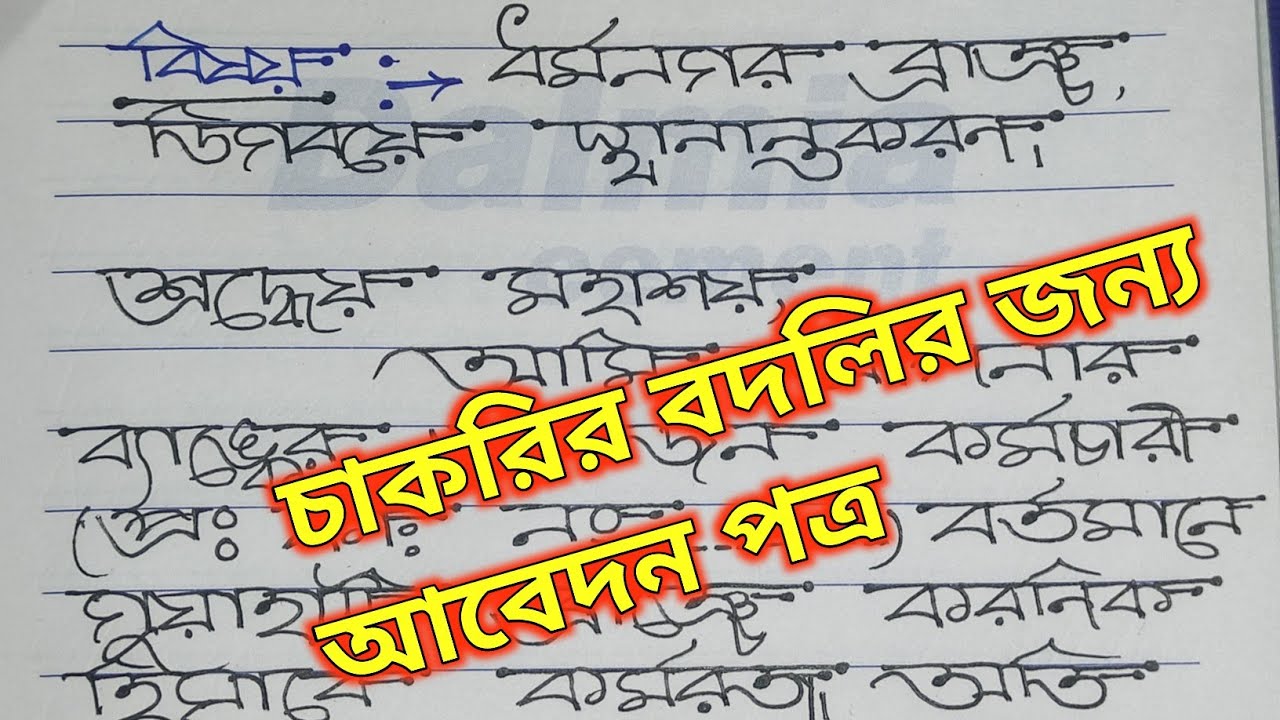 বিষয় :→ ধর্মনগর ব্রাঞ্চ,
স্থানান্তকরন।
Dalmia
cement
শ্রদ্ধেয় মহাশয়,
আমি
ব্যাঙ্কের জন কর্মচারী
নং ) বর্তমানে
করনিক
হিসাবে কর্মরত। অতি
চাকরির বদলির জন্য
আবেদন পত্র